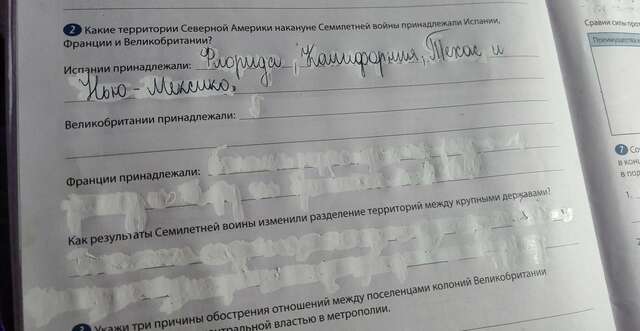 2 Какие территории Северной Америки накануне Семилетней войны принадлежали Испании,
Франции и Великобритании?
Испании принадлежали: Флорида, Калифорния, Техас и
Нью-Мексико.
Великобритании принадлежали:
Франции принадлежали:
Как результаты Семилетней войны изменили разделение территорий между крупными державами?
3 Укажи три причины обострения отношений между поселенцами колоний Великобритании
центральной властью в метрополии.
Сравни силы
Преимущества
2
в кон
в под
1.